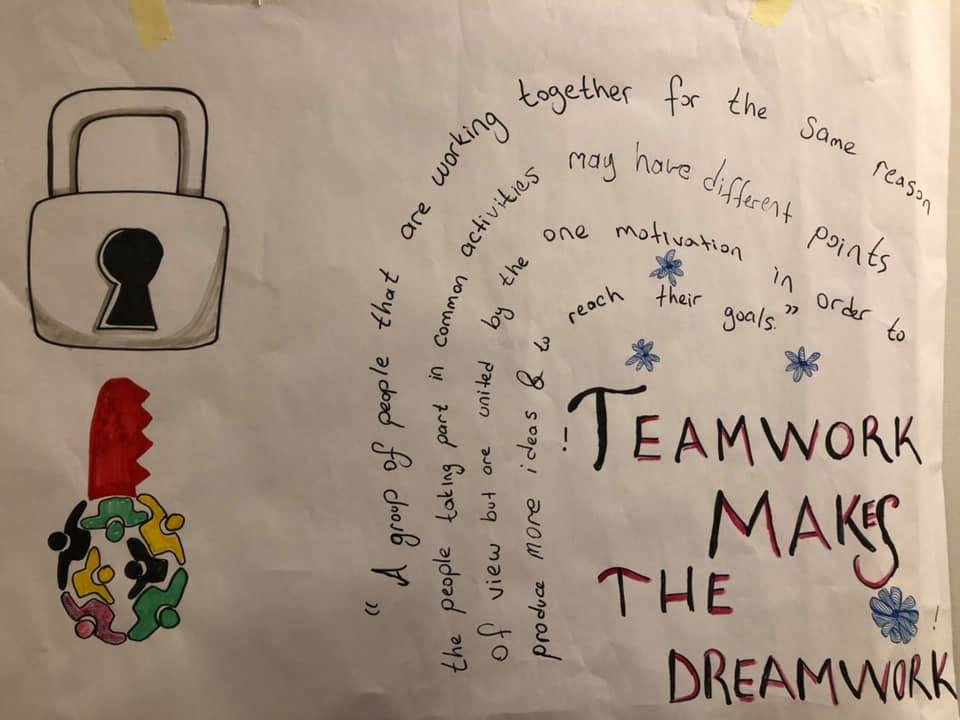 “ A group of people that are working together for the same reason
the people taking part in common activities may have different points
of view but are united by the one motivation in order to
produce more ideas & to reach their goals.”
!- TEAMWORK
MAKES
THE
DREAMWORK!